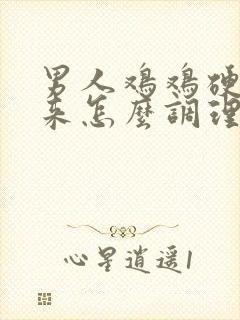 男人鸡鸡硬
来怎麽調理
心星逍遥1